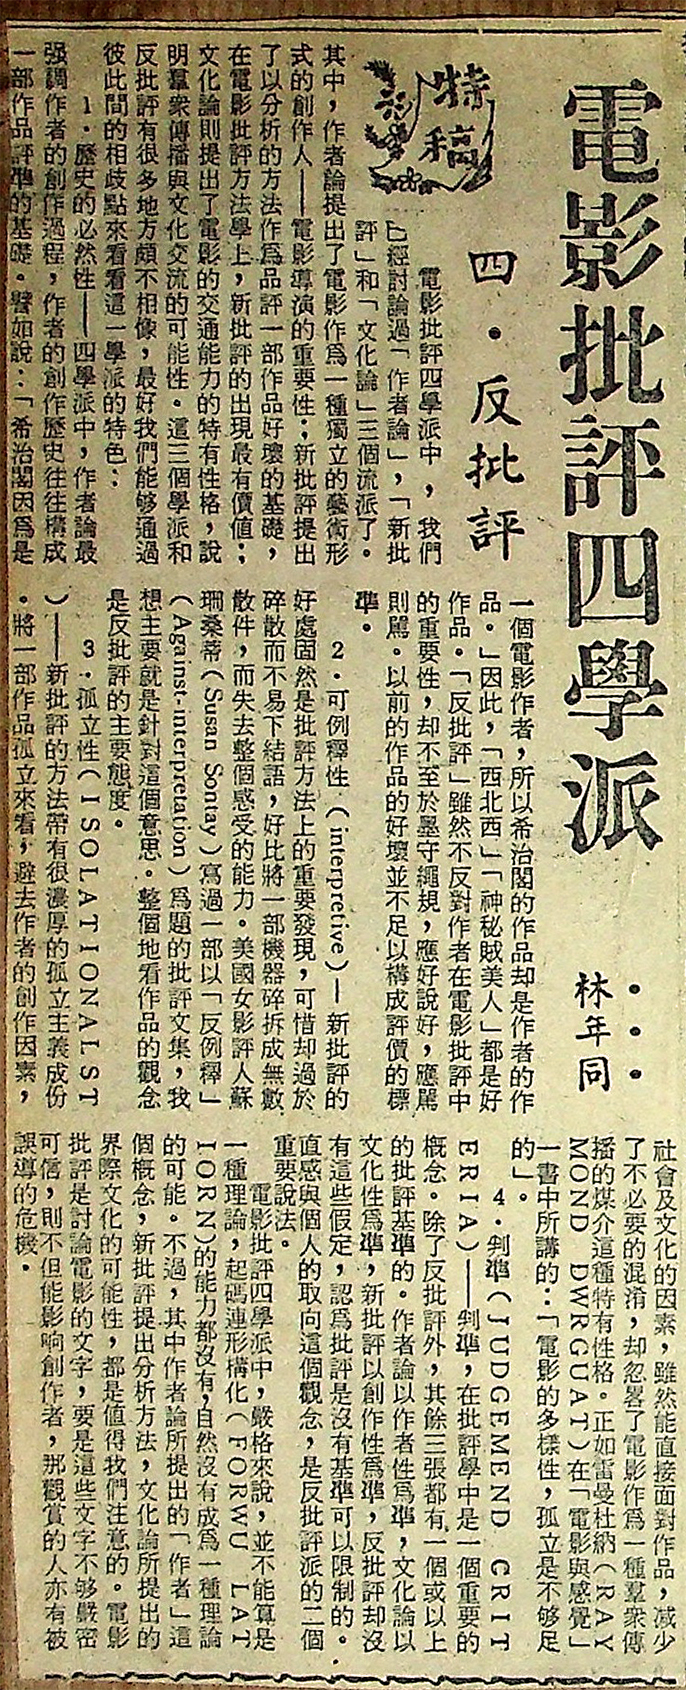 電影批評四學派
林年同
特稿
四·反批評
電影批評四學派中，我們
已經討論過「作者論」，「新批
評」和「文化論」三個流派了。
其中，作者論提出了電影作爲一種獨立的藝術形
式的創作人——電影導演的重要性；新批評提出
了以分析的方法作爲品評一部作品好壞的基礎，
在電影批評方法學上，新批評的出現最有價值；
文化論則提出了電影的交通能力的特有性格，說
明羣衆傳播與文化交流的可能性。這三個學派和
反批評有很多地方頗不相像，最好我們能够通過
彼此間的相歧點來看看這一學派的特色：
1·歷史的必然性——四學派中，作者論最
强調作者的創作過程，作者的創作歷史往往構成
一部作品評準的基礎。譬如說：「希治閣因爲是
一個電影作者，所以希治閣的作品却是作者的作
品。」因此，「西北西」「神秘賊美人」都是好
作品。「反批評」雖然不反對作者在電影批評中
的重要性，却不至於墨守繩規，應好說好，應駡
則駡。以前的作品的好壞並不足以構成評價的標
準。
2·可例釋性（interpretive）—新批評的
好處固然是批評方法上的重要發現，可惜却過於
碎散而不易下結語，好比將一部機器碎拆成無數
散件，而失去整個感受的能力。美國女影評人蘇
珊桑蒂（Susan Sontay）寫過一部以「反例釋」
（Against-interpretation）爲題的批評文集，我
想主要就是針對這個意思。整個地看作品的觀念
是反批評的主要態度。
3·孤立性（ISOLATIONALST
）——新批評的方法帶有很濃厚的孤立主義成份
。將一部作品孤立來看，避去作者的創作因素，
社會及文化的因素，雖然能直接面對作品，減少
了不必要的混淆，却忽畧了電影作爲一種羣衆傳
播的媒介這種特有性格。正如雷曼杜納（RAY
MOND DWRGUAT）在「電影與感覺」
一書中所講的：「電影的多樣性，孤立是不够足
的」。
4·判準（JUDGEMEND CRIT
ERIA）——判準，在批評學中是一個重要的
概念。除了反批評外，其餘三張都有一個或以上
的批評基準的。作者論以作者性爲準，文化論以
文化性爲準，新批評以創作性爲準，反批評却沒
有這些假定，認爲批評是沒有基準可以限制的。
直感與個人的取向這個觀念，是反批評派的二個
重要說法。
電影批評四學派中，嚴格來說，並不能算是
一種理論，起碼連形構化（FORWU LAT
IORN）的能力都沒有，自然沒有成爲一種理論
的可能。不過，其中作者論所提出的「作者」這
個概念，新批評提出分析方法，文化論所提出的
界際文化的可能性，都是值得我們注意的。電影
批評是討論電影的文字，要是這些文字不够嚴密
可信，則不但能影响創作者，那觀賞的人亦有被
誤導的危機。